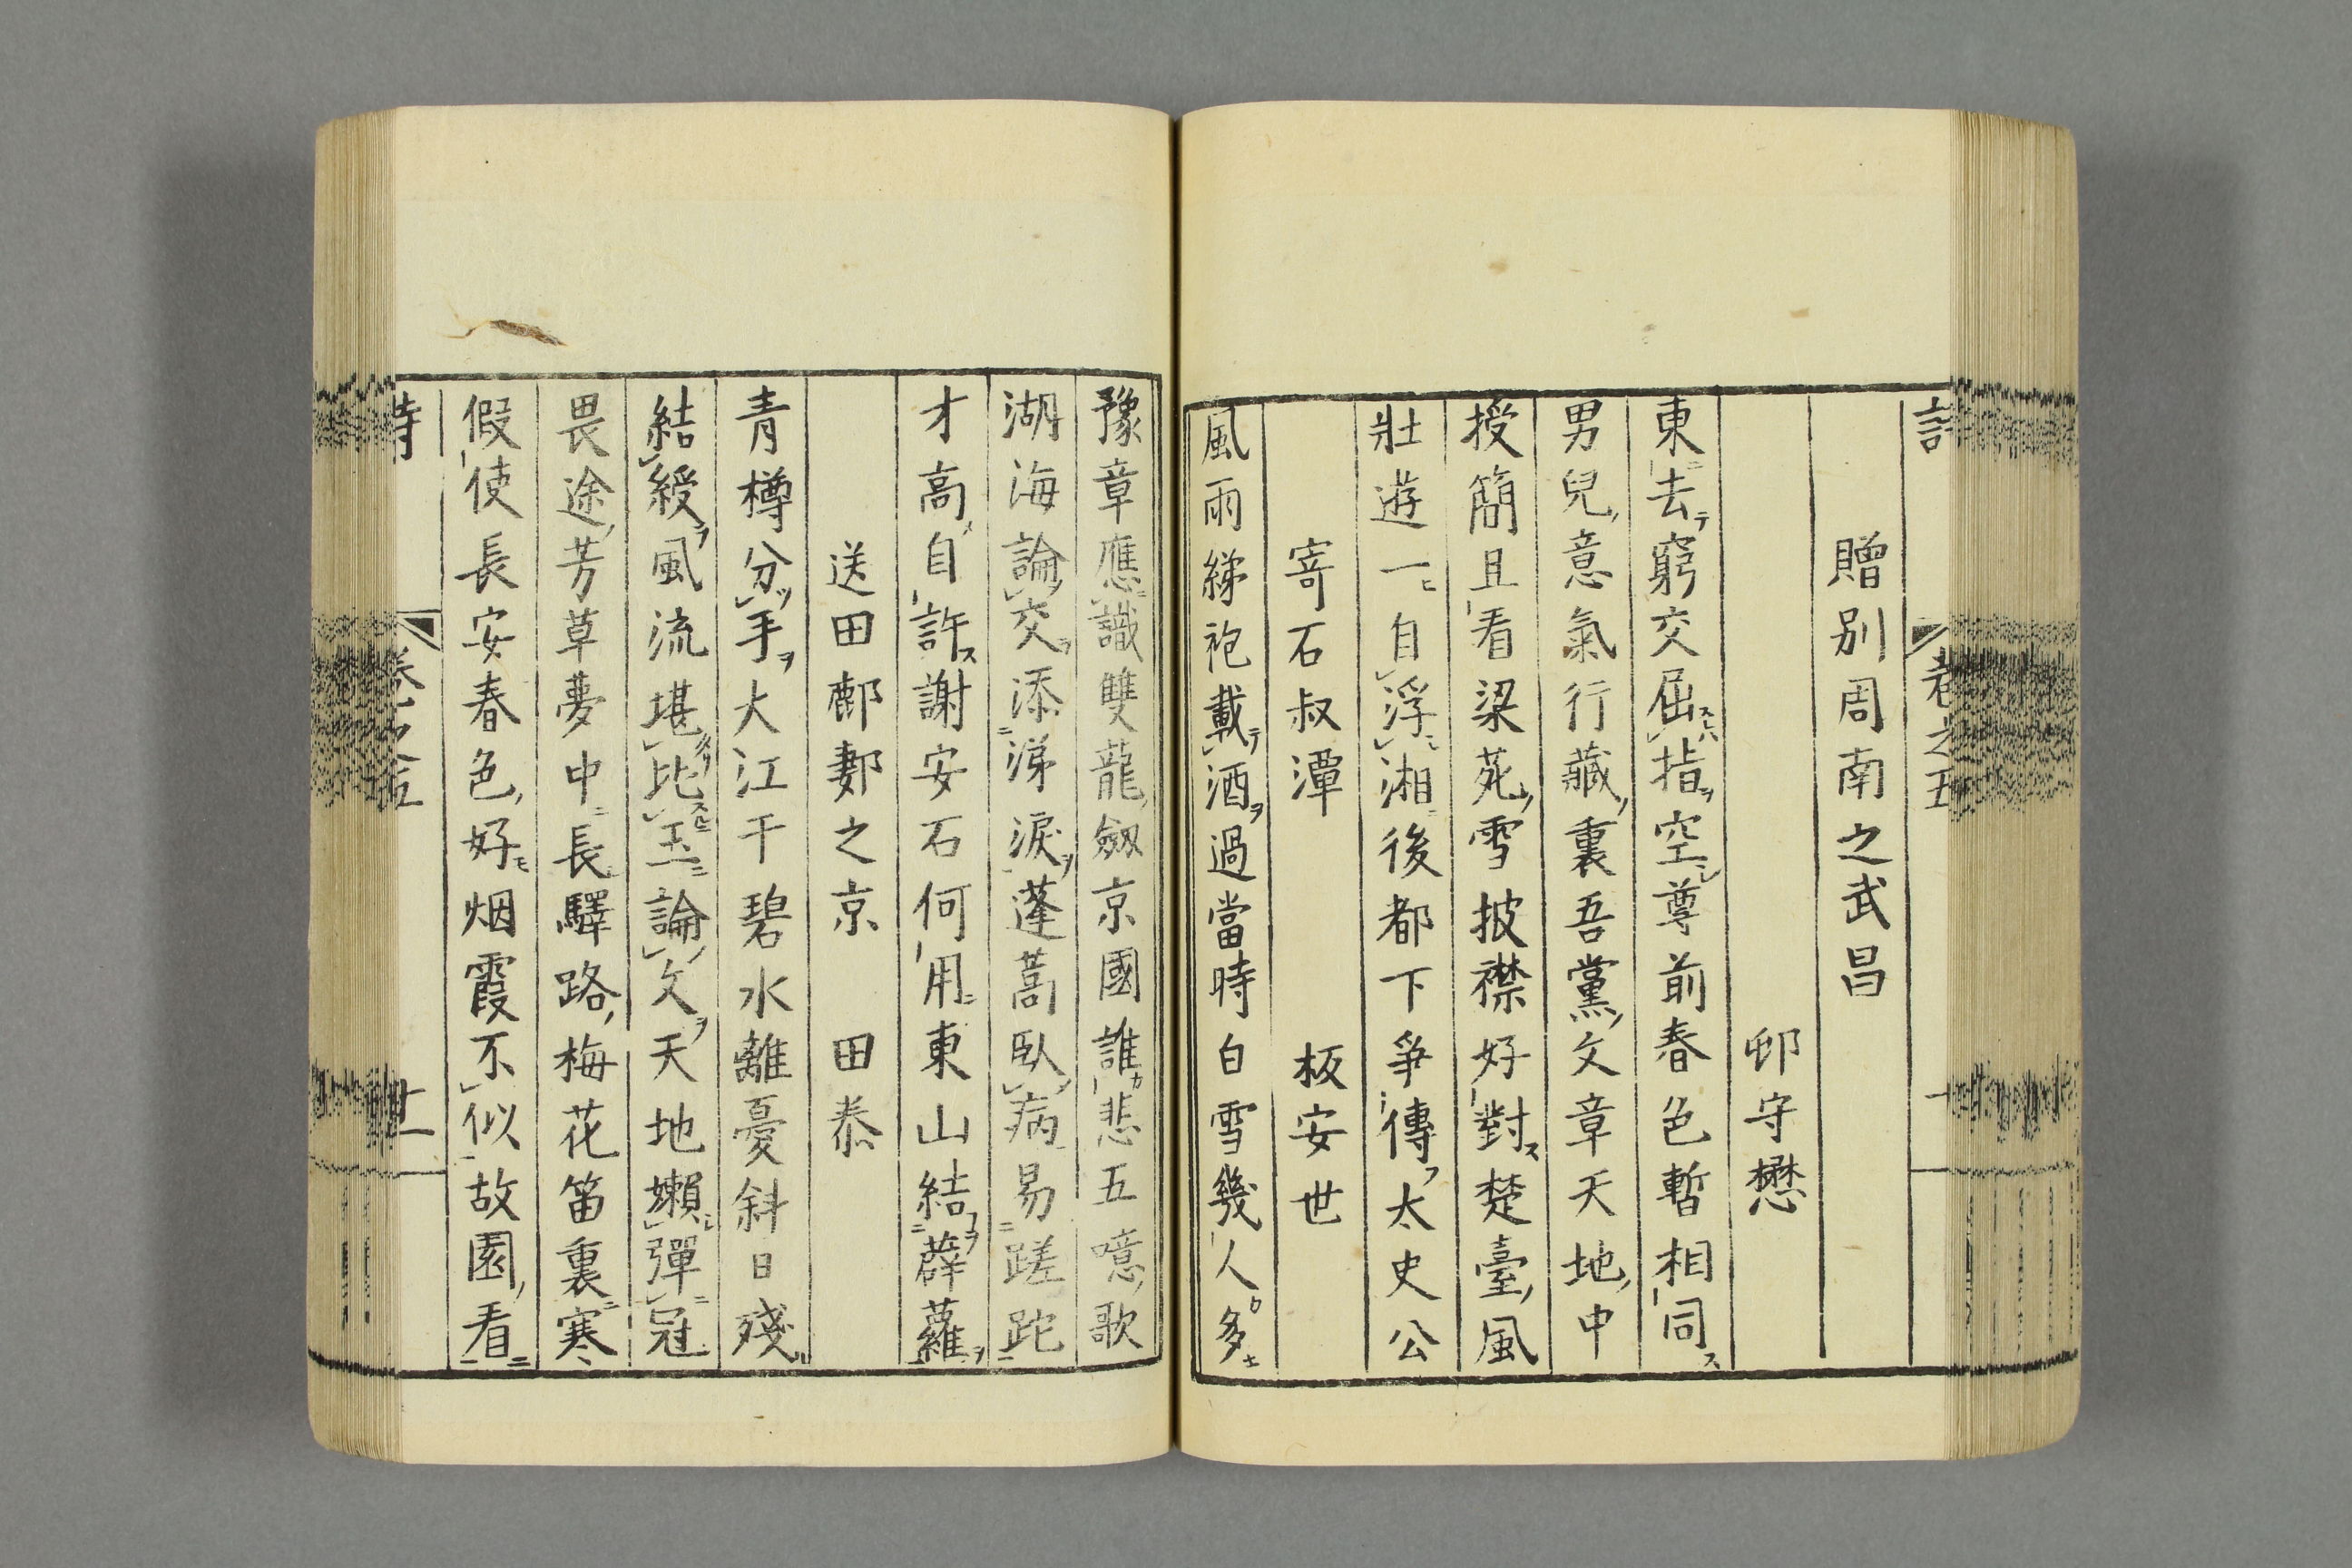 詩 卷之五
贈別周南之武昌
邨守懋
東去窮交屈指空尊前春色暫相同
男兒意氣行藏裏吾黨文章天地中
授簡且看梁苑雪披襟好對楚臺風
壯遊一自浮湘後都下爭傳太史公
寄石叔潭 板安世
風雨綈袍載酒過當時白雪幾人多
豫章應識雙龍劔京國誰悲五噫歌
湖海論交添涕淚蓬蒿臥病易蹉跎
才高自許謝安石何用東山結薜蘿
送田鄜鄠之京 田泰
青樽分手大江干碧水離憂斜日殘
結綬風流堪比玉論文天地嬾彈冠
畏途芳草夢中長驛路梅花笛裏寒
假使長安春色好烟霞不似故園看
詩 卷之五 十一